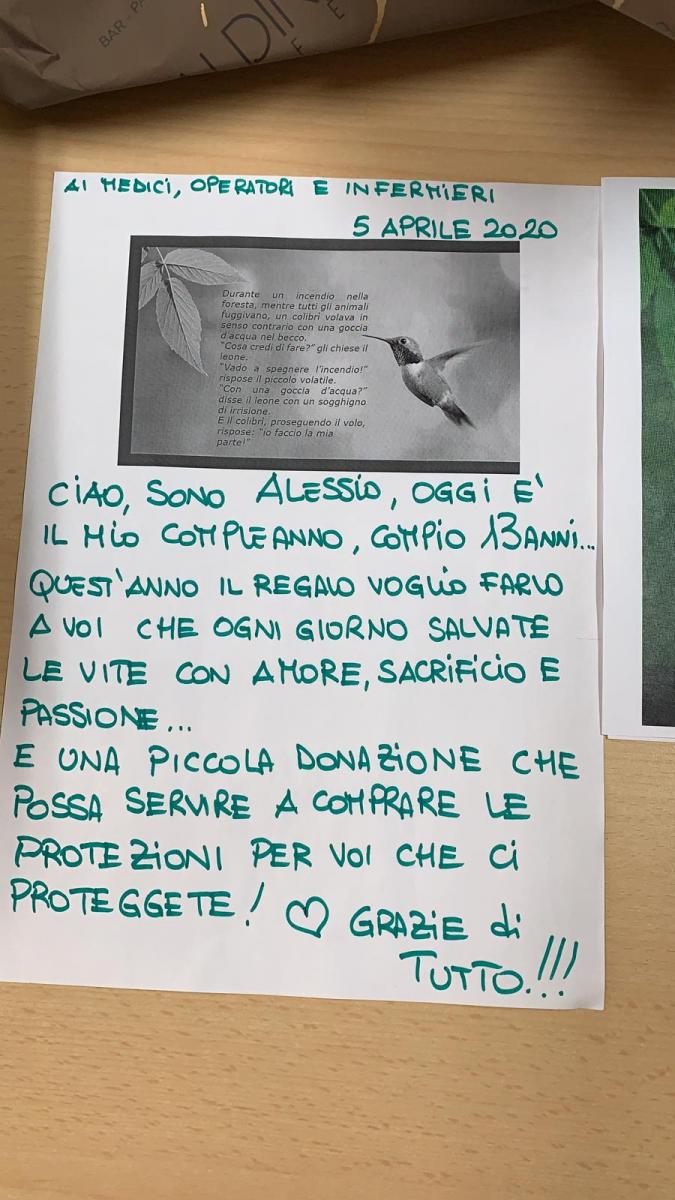 BAR - PA
AI MEDICI, OPERATORI E INFERMIERI
5 APRILE 2020
Durante un incendio nella
foresta, mentre tutti gli animali
fuggivano, un colibrì volava in
senso contrario con una goccia
d'acqua nel becco.
"Cosa credi di fare?" gli chiese il
leone.
"Vado a spegnere l'incendio!"
rispose il piccolo volatile.
"Con una goccia d'acqua?"
disse il leone con un sogghigno
di irrisione.
E il colibrì, proseguendo il volo,
rispose: "io faccio la mia
parte!"
CIAO, SONO ALESSIO, OGGI E'
IL MIO COMPLEANNO, COMPIO 13 ANNI...
QUEST'ANNO IL REGALO VOGLIO FARLO
A VOI CHE OGNI GIORNO SALVATE
LE VITE CON AMORE, SACRIFICIO E
PASSIONE...
E UNA PICCOLA DONAZIONE CHE
POSSA SERVIRE A COMPRARE LE
PROTEZIONI PER VOI CHE CI
PROTEGGETE! ♡ GRAZIE di
TUTTO...!!!